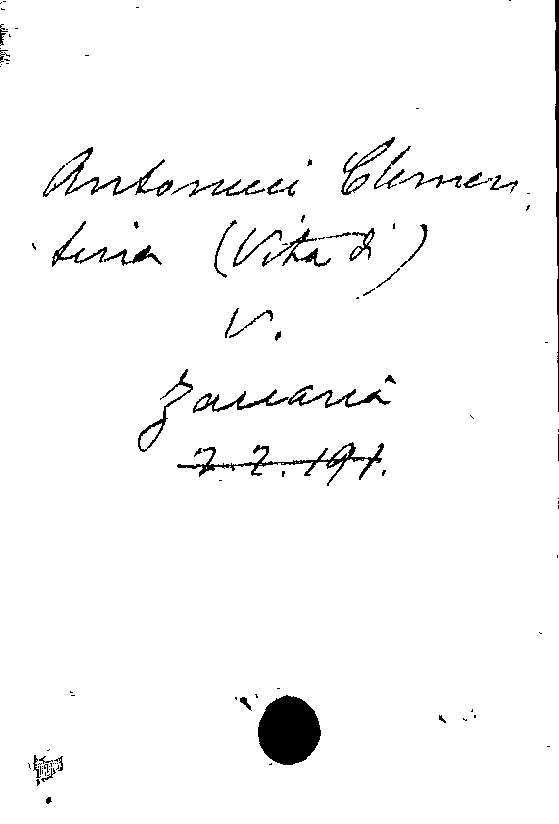 Antonucci Clemen
tina (Vita di)
V.
Zaccaria
7.7.191.